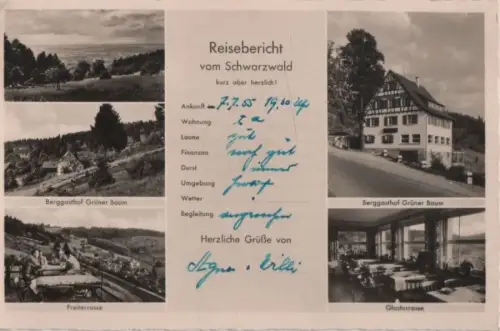 Reisebericht
vom Schwarzwald
kurz aber herzlich!
Ankunft am 7.7.55 19.10 Uhr
Wohnung I a
Laune gut
Finanzen sehr gut
Durst immer
Umgebung
Wetter "
Begleitung angenehm
Herzliche Grüße von
Willi
Berggasthof Grüner Baum
Freiterrasse
Berggasthof Grüner Baum
Glasterrasse